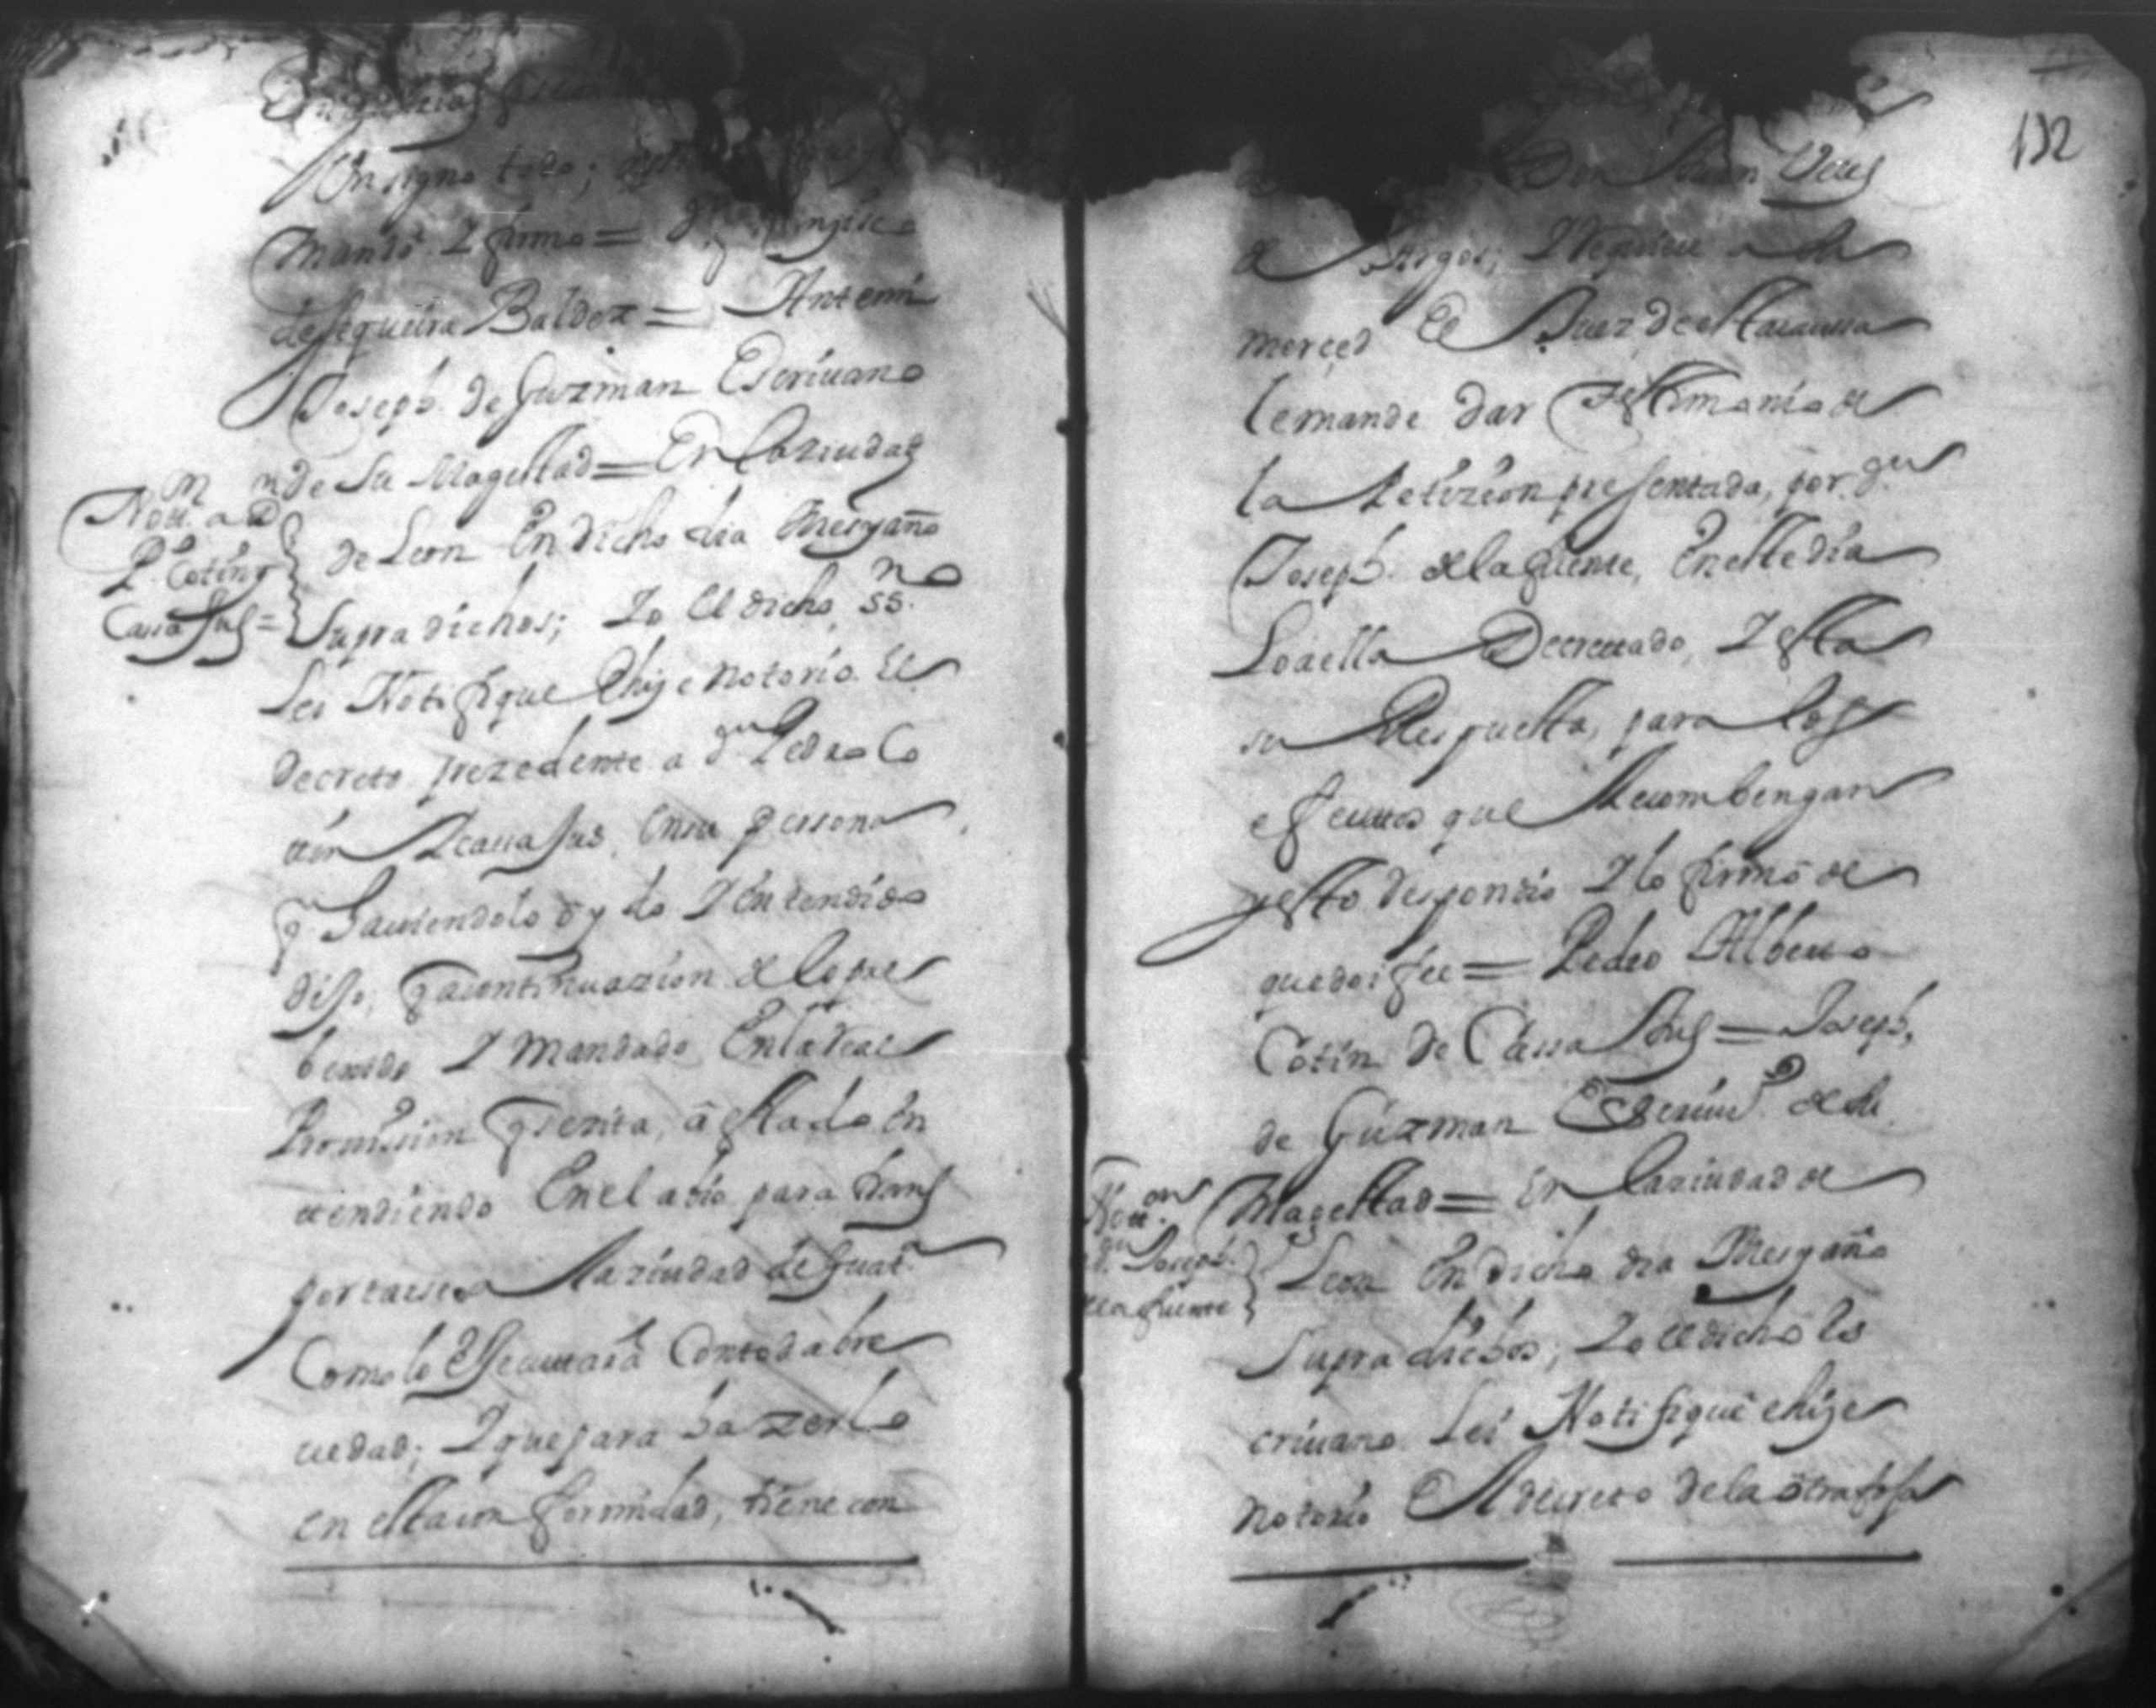 En signo todo;
mando y firmo = 
de sequeira Baldez = Antemi
Joseph de Guzman Escriuano
de Su Magestad = En la ziudad
Nott.on a D
P.o Cotin y
Cassa Sus =
de Leon En dicho dia Mes y año
Supra dichos; Yo el dicho ss.no
Lei Notifique E hize notorio el
decreto prezedente a d.n Pedro Co
tin de cassa sus, En su persona
q.n hauiendolo oydo Y entendido
dijo, q a continuazion de lo pre
benido Y mandado En la Real
Prouision q se zita, a estado en
tendiendo En el abio para trans
portarse a la ziudad de Guat.a
Como lo Ejecutará Con toda bre
uedad; Y que para hazerlo
en esta con formidad, tiene con
132
Don Juan
de Argos; Y requiere a su
merced el Juez de esta caussa
le mande dar Testimonio de
la Petizion presentada, por d.n
Joseph de la fuente, En este dia
Lo a ella Decretado, Y esta
su Respuesta, para los
efectos que le combengan
y esto respondio Y lo firmó de
que doi fee = Pedro Alberto
Cotin de Cassa Sus = Joseph
de Guzman Escriu.o de su
Magestad = En la ziudad de
Nott.on
d.n Joseph
de la fuente
Leon En dicho dia Mes y año
Supra dichos; Yo el dicho es
criuano Lei Notifique e hize
notorio El decreto de la otra foja